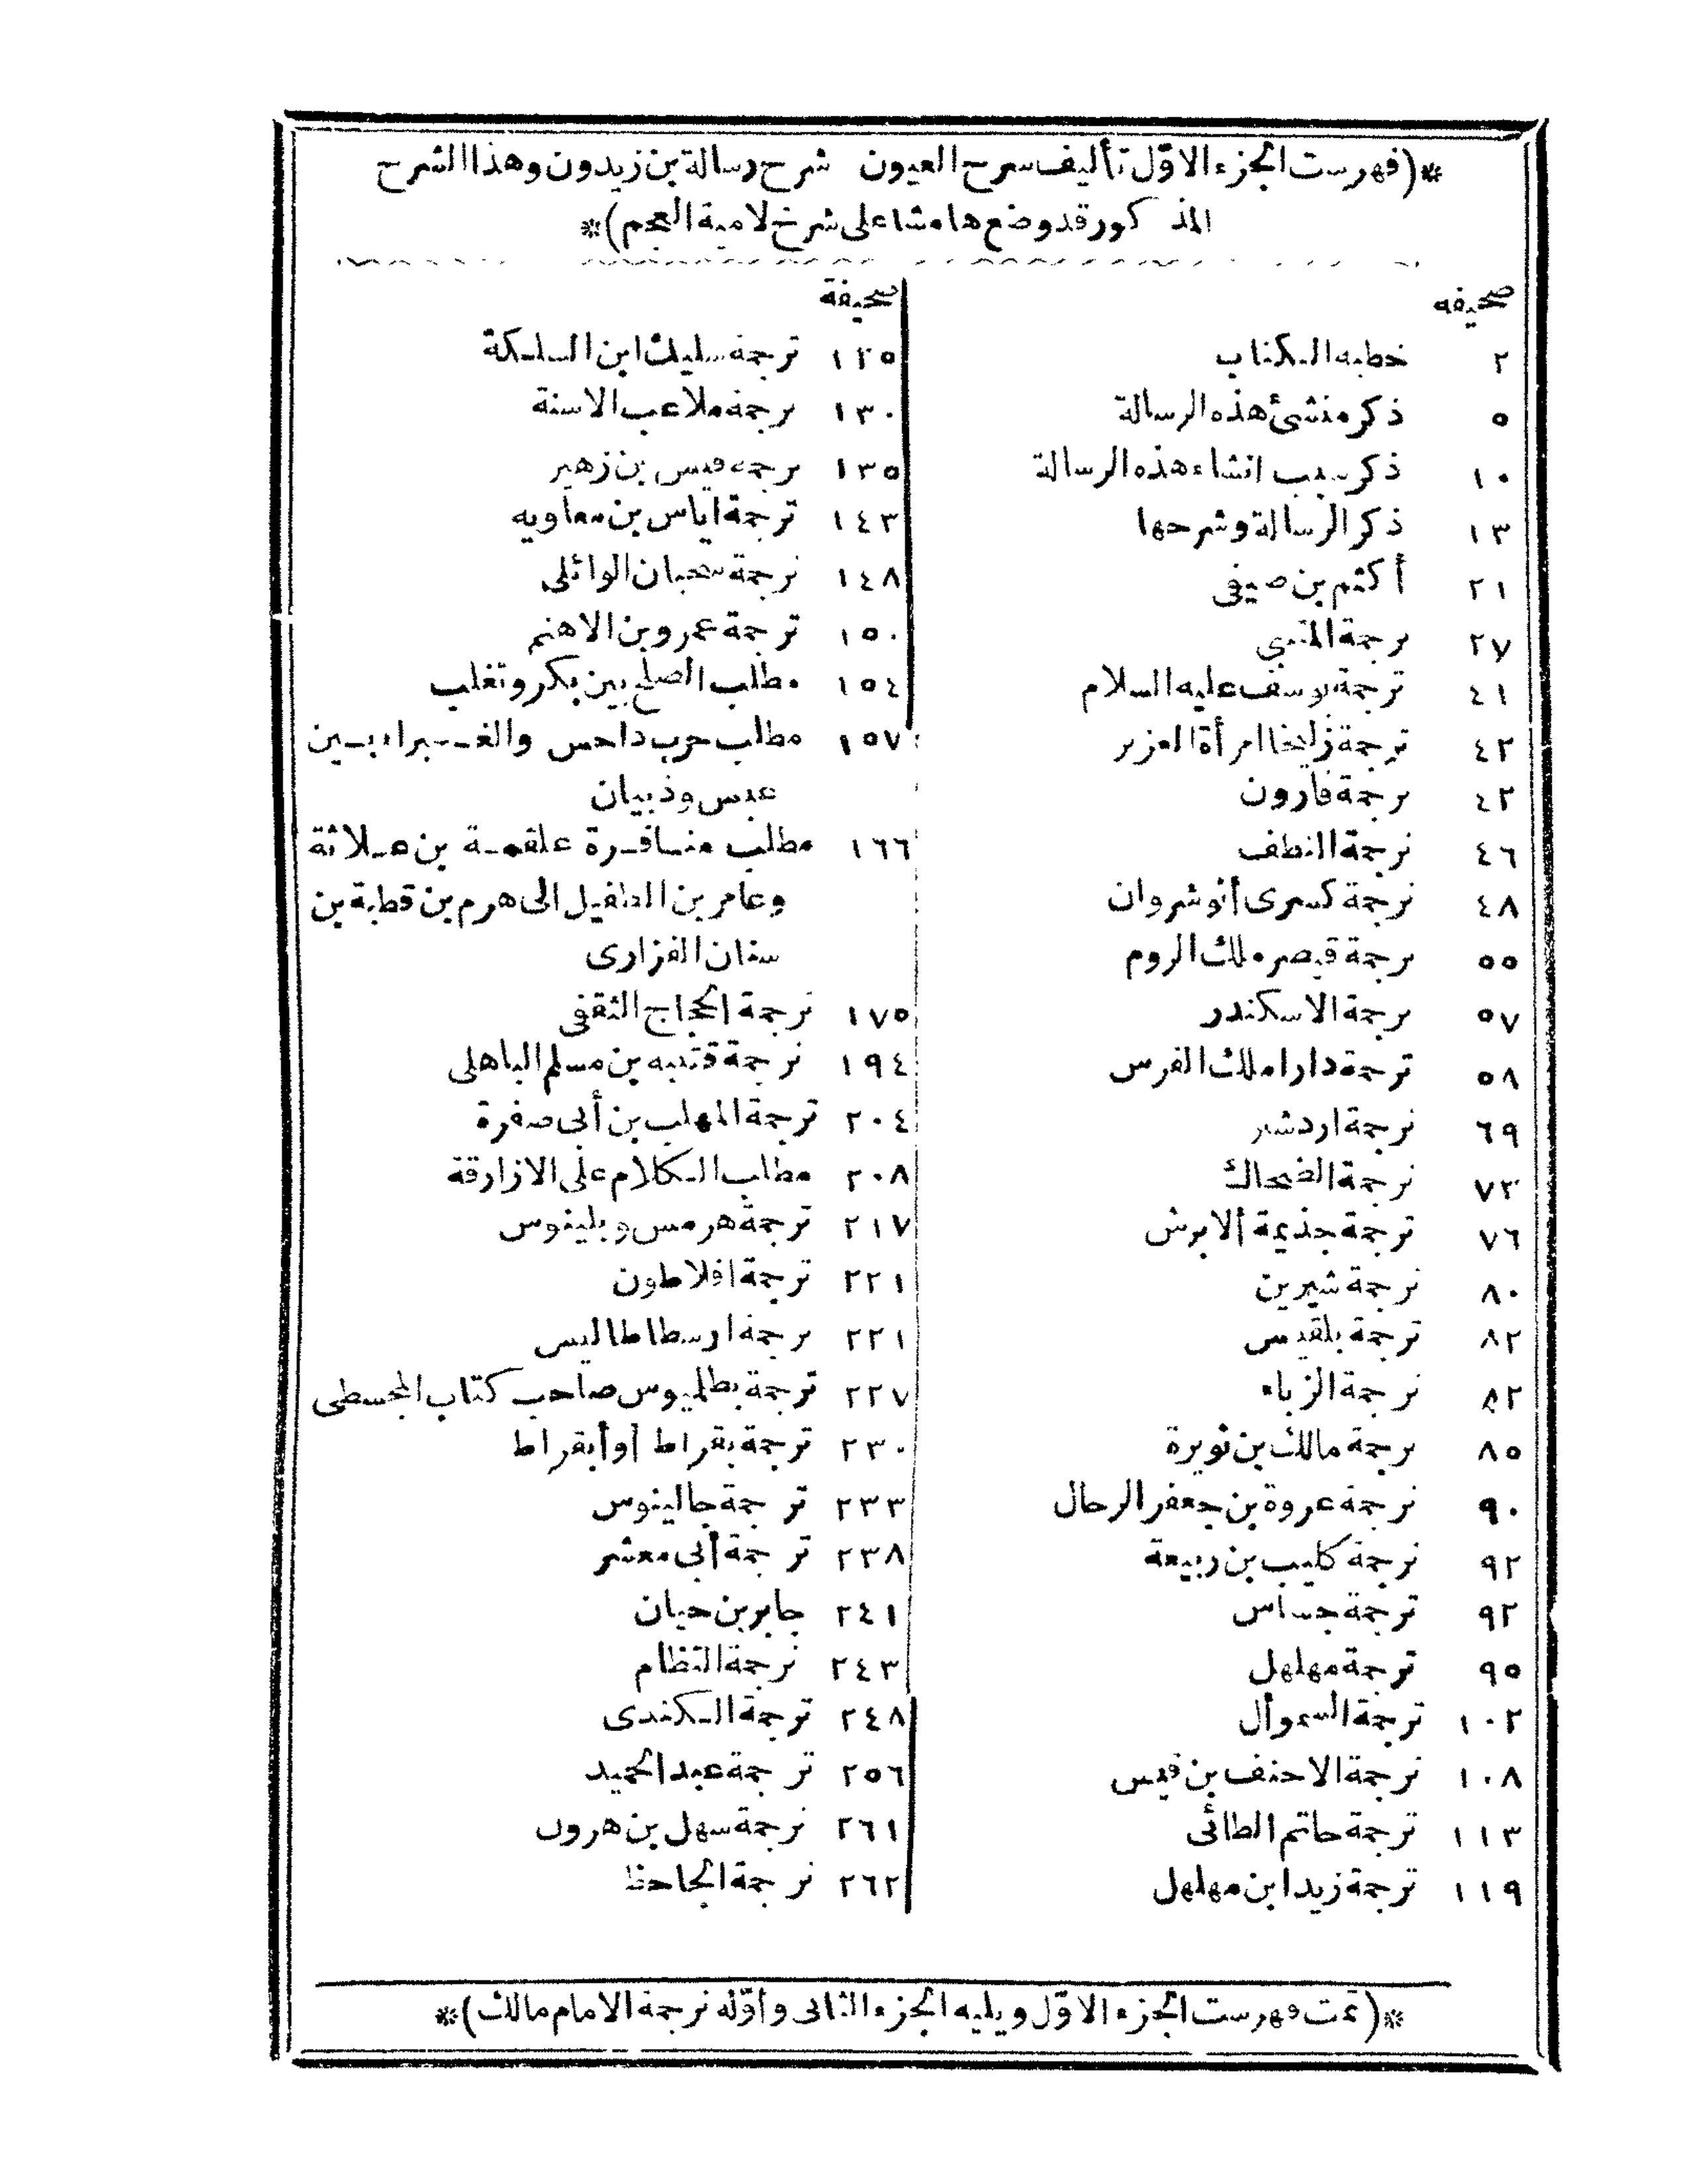 *(فهرست الجزء الاوّل تأليف سرح العيون شرح رسالة بن زيدون وهذا الشرح
المذكور قد وضع هامشا على شرح لامية العجم)*
صحيفه
٢ خطبه الكتاب
٥ ذكر منشئ هذه الرسالة
١٠ ذكر سبب انشاء هذه الرسالة
١٣ ذكر الرسالة وشرحها
٢١ أكثم بن صيفى
٢٧ ترجمة المتنبي
٤١ ترجمة يوسف عليه السلام
٤٢ ترجمة زليخا امرأة العزيز
٤٢ ترجمة قارون
٤٦ ترجمة النطف
٤٨ ترجمة كسرى أنوشروان
٥٥ ترجمة قيصر ملك الروم
٥٧ ترجمة الاسكندر
٥٨ ترجمة دارا ملك الفرس
٦٩ ترجمة اردشير
٧٣ ترجمة الضحاك
٧٦ ترجمة جذيمة ألابرش
٨٠ ترجمة شيرين
٨٢ ترجمة بلقيس
٨٢ ترجمة الزباء
٨٥ ترجمة مالك بن نويرة
٩٠ ترجمة عروة بن جعفر الرحال
٩٢ ترجمة كليب بن ربيعة
٩٢ ترجمة جساس
٩٥ ترجمة مهلهل
١٠٢ ترجمة السموأل
١٠٨ ترجمة الاحنف بن قيس
١١٣ ترجمة حاتم الطائى
١١٩ ترجمة زيد ابن مهلهل
صحيفة
١٢٥ ترجمة سليك ابن السلكة
١٣٠ ترجمة ملاعب الاسنة
١٣٥ ترجمة قيس بن زهير
١٤٣ ترجمة اياس بن معاويه
١٤٨ ترجمة سحبان الوائلى
١٥٠ ترجمة عمرو بن الاهتم
١٥٤ مطلب الصلح بين بكر وتغلب
١٥٧ مطلب حرب داحس والغبراء بين
عبس وذبيان
١٦٦ مطلب منافرة علقمة بن علاثة
وعامر بن الطفيل الى هرم بن قطبة بن
سنان الفزارى
١٧٥ ترجمة الحجاج الثقفى
١٩٤ ترجمة قتيبه بن مسلم الباهلى
٢٠٤ ترجمة المهلب بن أبى صفرة
٢٠٨ مطلب الكلام على الازارقة
٢١٧ ترجمة هرمس وبلينوس
٢٢١ ترجمة افلاطون
٢٢١ ترجمة ارسطاطاليس
٢٢٧ ترجمة بطلميوس صاحب كتاب المجسطى
٢٣٠ ترجمة بقراط أو أبقراط
٢٣٣ ترجمة جالينوس
٢٣٨ ترجمة أبى معشر
٢٤١ جابر بن حيان
٢٤٣ ترجمة النظام
٢٤٨ ترجمة الكندى
٢٥٦ ترجمة عبد الحميد
٢٦١ ترجمة سهل بن هرون
٢٦٢ ترجمة الجاحظ
*(تمت فهرست الجزء الاوّل ويليه الجزء الثانى وأوّله ترجمة الامام مالك)*